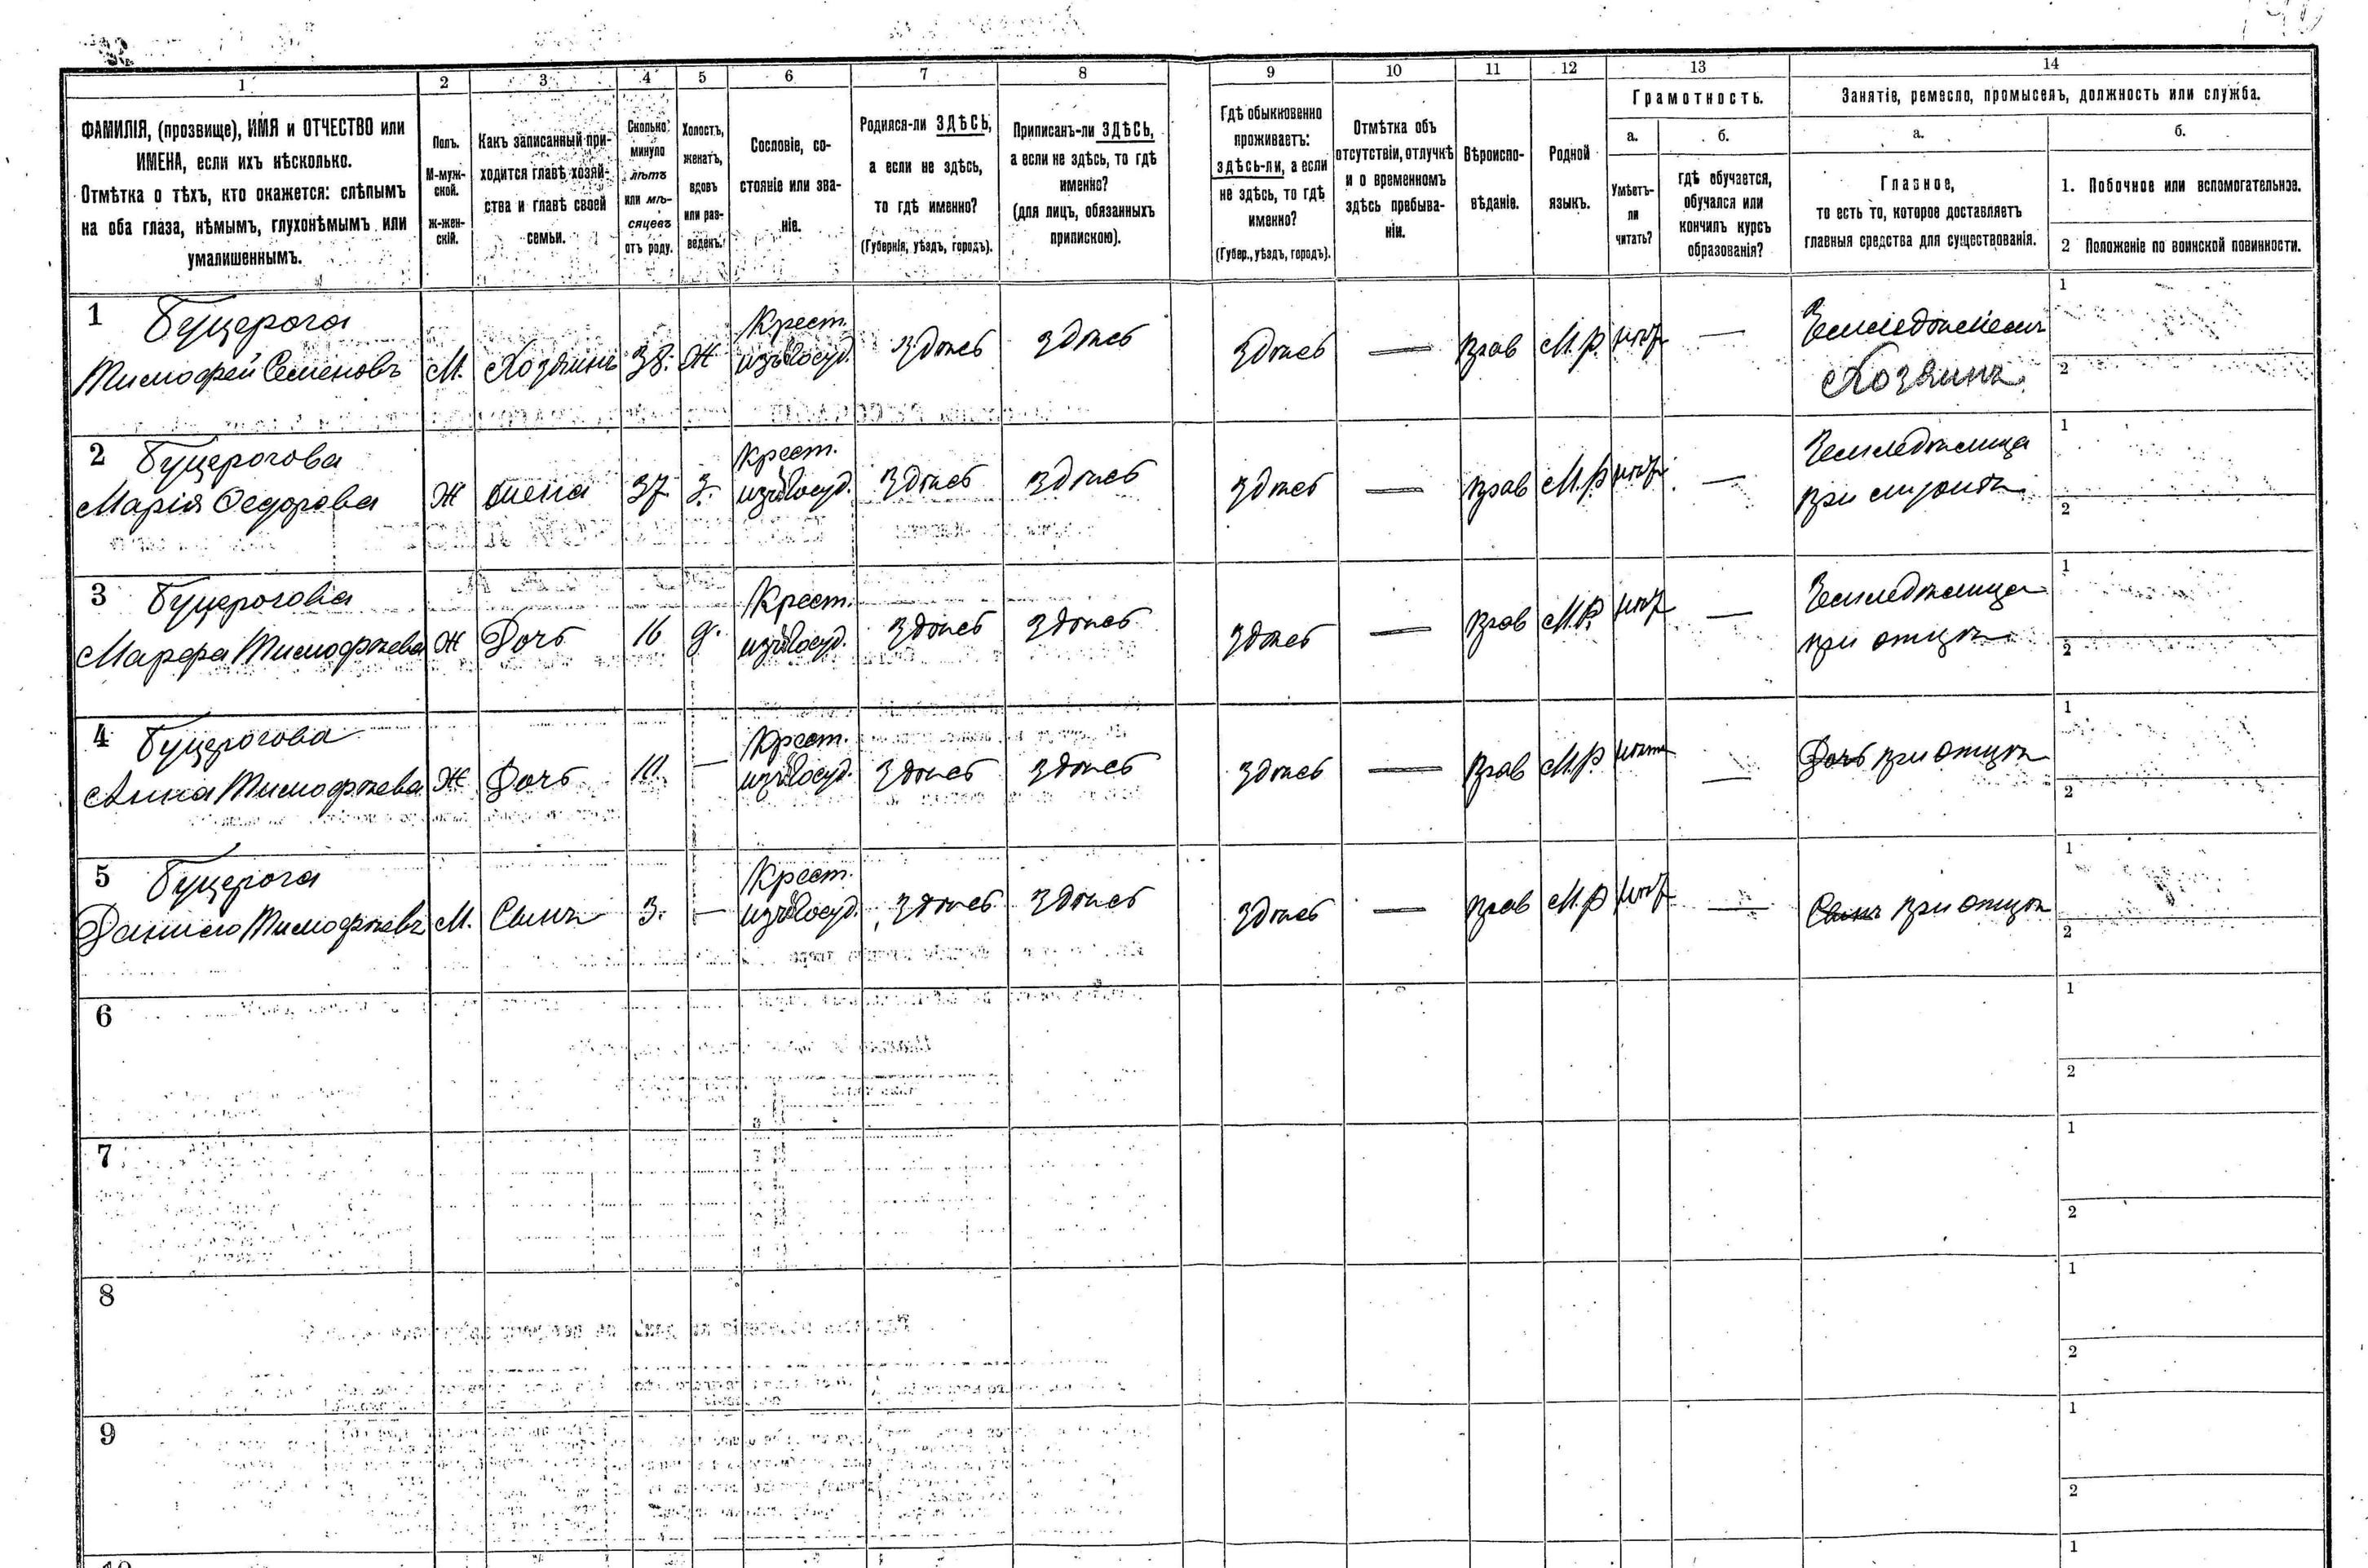 1 2 3 4 5 6 7 8 9 10 11 12 13 14
ФАМИЛІЯ, (прозвище), ИМЯ и ОТЧЕСТВО или
ИМЕНА, если ихъ нѣсколько.
Отмѣтка о тѣхъ, кто окажется: слѣпымъ
на оба глаза, нѣмымъ, глухонѣмымъ или
умалишеннымъ.
Полъ.
М-муж-
ской.
Ж-жен-
скій.
Какъ записанный при-
ходится главѣ хозяй-
ства и главѣ своей
семьи.
Сколько
минуло
лѣтъ
или мѣ-
сяцевъ
отъ роду.
Холостъ,
женатъ,
вдовъ
или раз-
веденъ.
Сословіе, со-
стояніе или зва-
ніе.
Родился-ли ЗДѢСЬ,
а если не здѣсь,
то гдѣ именно?
(Губернія, уѣздъ, городъ).
Приписанъ-ли ЗДѢСЬ,
а если не здѣсь, то гдѣ
именно?
(для лицъ, обязанныхъ
припискою).
Гдѣ обыкновенно
проживаетъ:
здѣсь-ли, а если
не здѣсь, то гдѣ
именно?
(Губер., уѣздъ, городъ).
Отмѣтка объ
отсутствіи, отлучкѣ
и о временномъ
здѣсь пребыва-
ніи.
Вѣроиспо-
вѣданіе.
Родной
языкъ.
Грамотность.
а.
Умѣетъ-
ли
читать?
б.
гдѣ обучается,
обучался или
кончилъ курсъ
образованія?
Занятіе, ремесло, промыселъ, должность или служба.
а.
Главное,
то есть то, которое доставляетъ
главныя средства для существованія.
б.
1. Побочное или вспомогательное.
2 Положеніе по воинской повинности.
1 Буцерога Крест. Земледѣлецъ 1
Тимофей Семеновъ М. Хозяинъ 38. Ж изъ Госуд. Здѣсь Здѣсь Здѣсь — Прав М.Р. нѣт — Хозяинъ 2
2 Буцерогова Крест. Земледѣлица 1
Марія Федорова Ж жена 37. З. изъ Госуд. Здѣсь Здѣсь Здѣсь — Прав М.Р. нѣт — при мужѣ 2
3 Буцерогова Крест. Земледѣлица 1
Марфа Тимофѣева Ж Дочь 16 д. изъ Госуд. Здѣсь Здѣсь Здѣсь — Прав М.Р. нѣт — при отцѣ 2
4 Буцерогова Крест. 1
Анна Тимофѣева Ж Дочь 10. — изъ Госуд. Здѣсь Здѣсь Здѣсь — Прав М.Р. нѣт — Дочь при отцѣ 2
5 Буцерога Крест. 1
Данило Тимофѣевъ М. Сынъ 3. — изъ Госуд. Здѣсь Здѣсь Здѣсь — Прав М.Р. нѣт — Сынъ при отцѣ 2
6 1
2
7 1
2
8 1
2
9 1
2
10 1